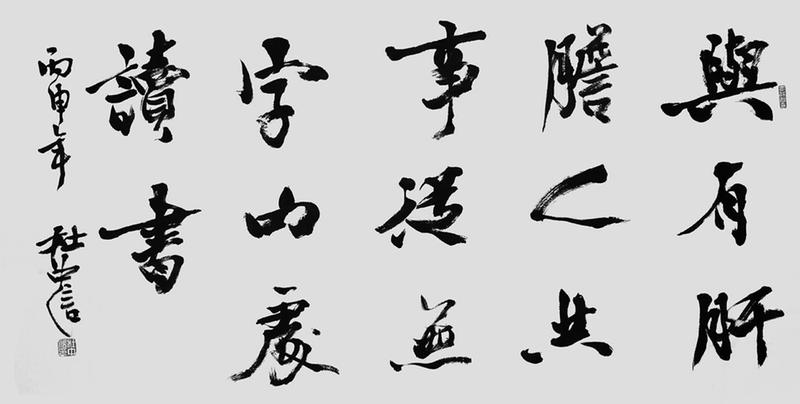 與有肝
膽人共
事從無
字句處
讀書
丙申年 杜中信